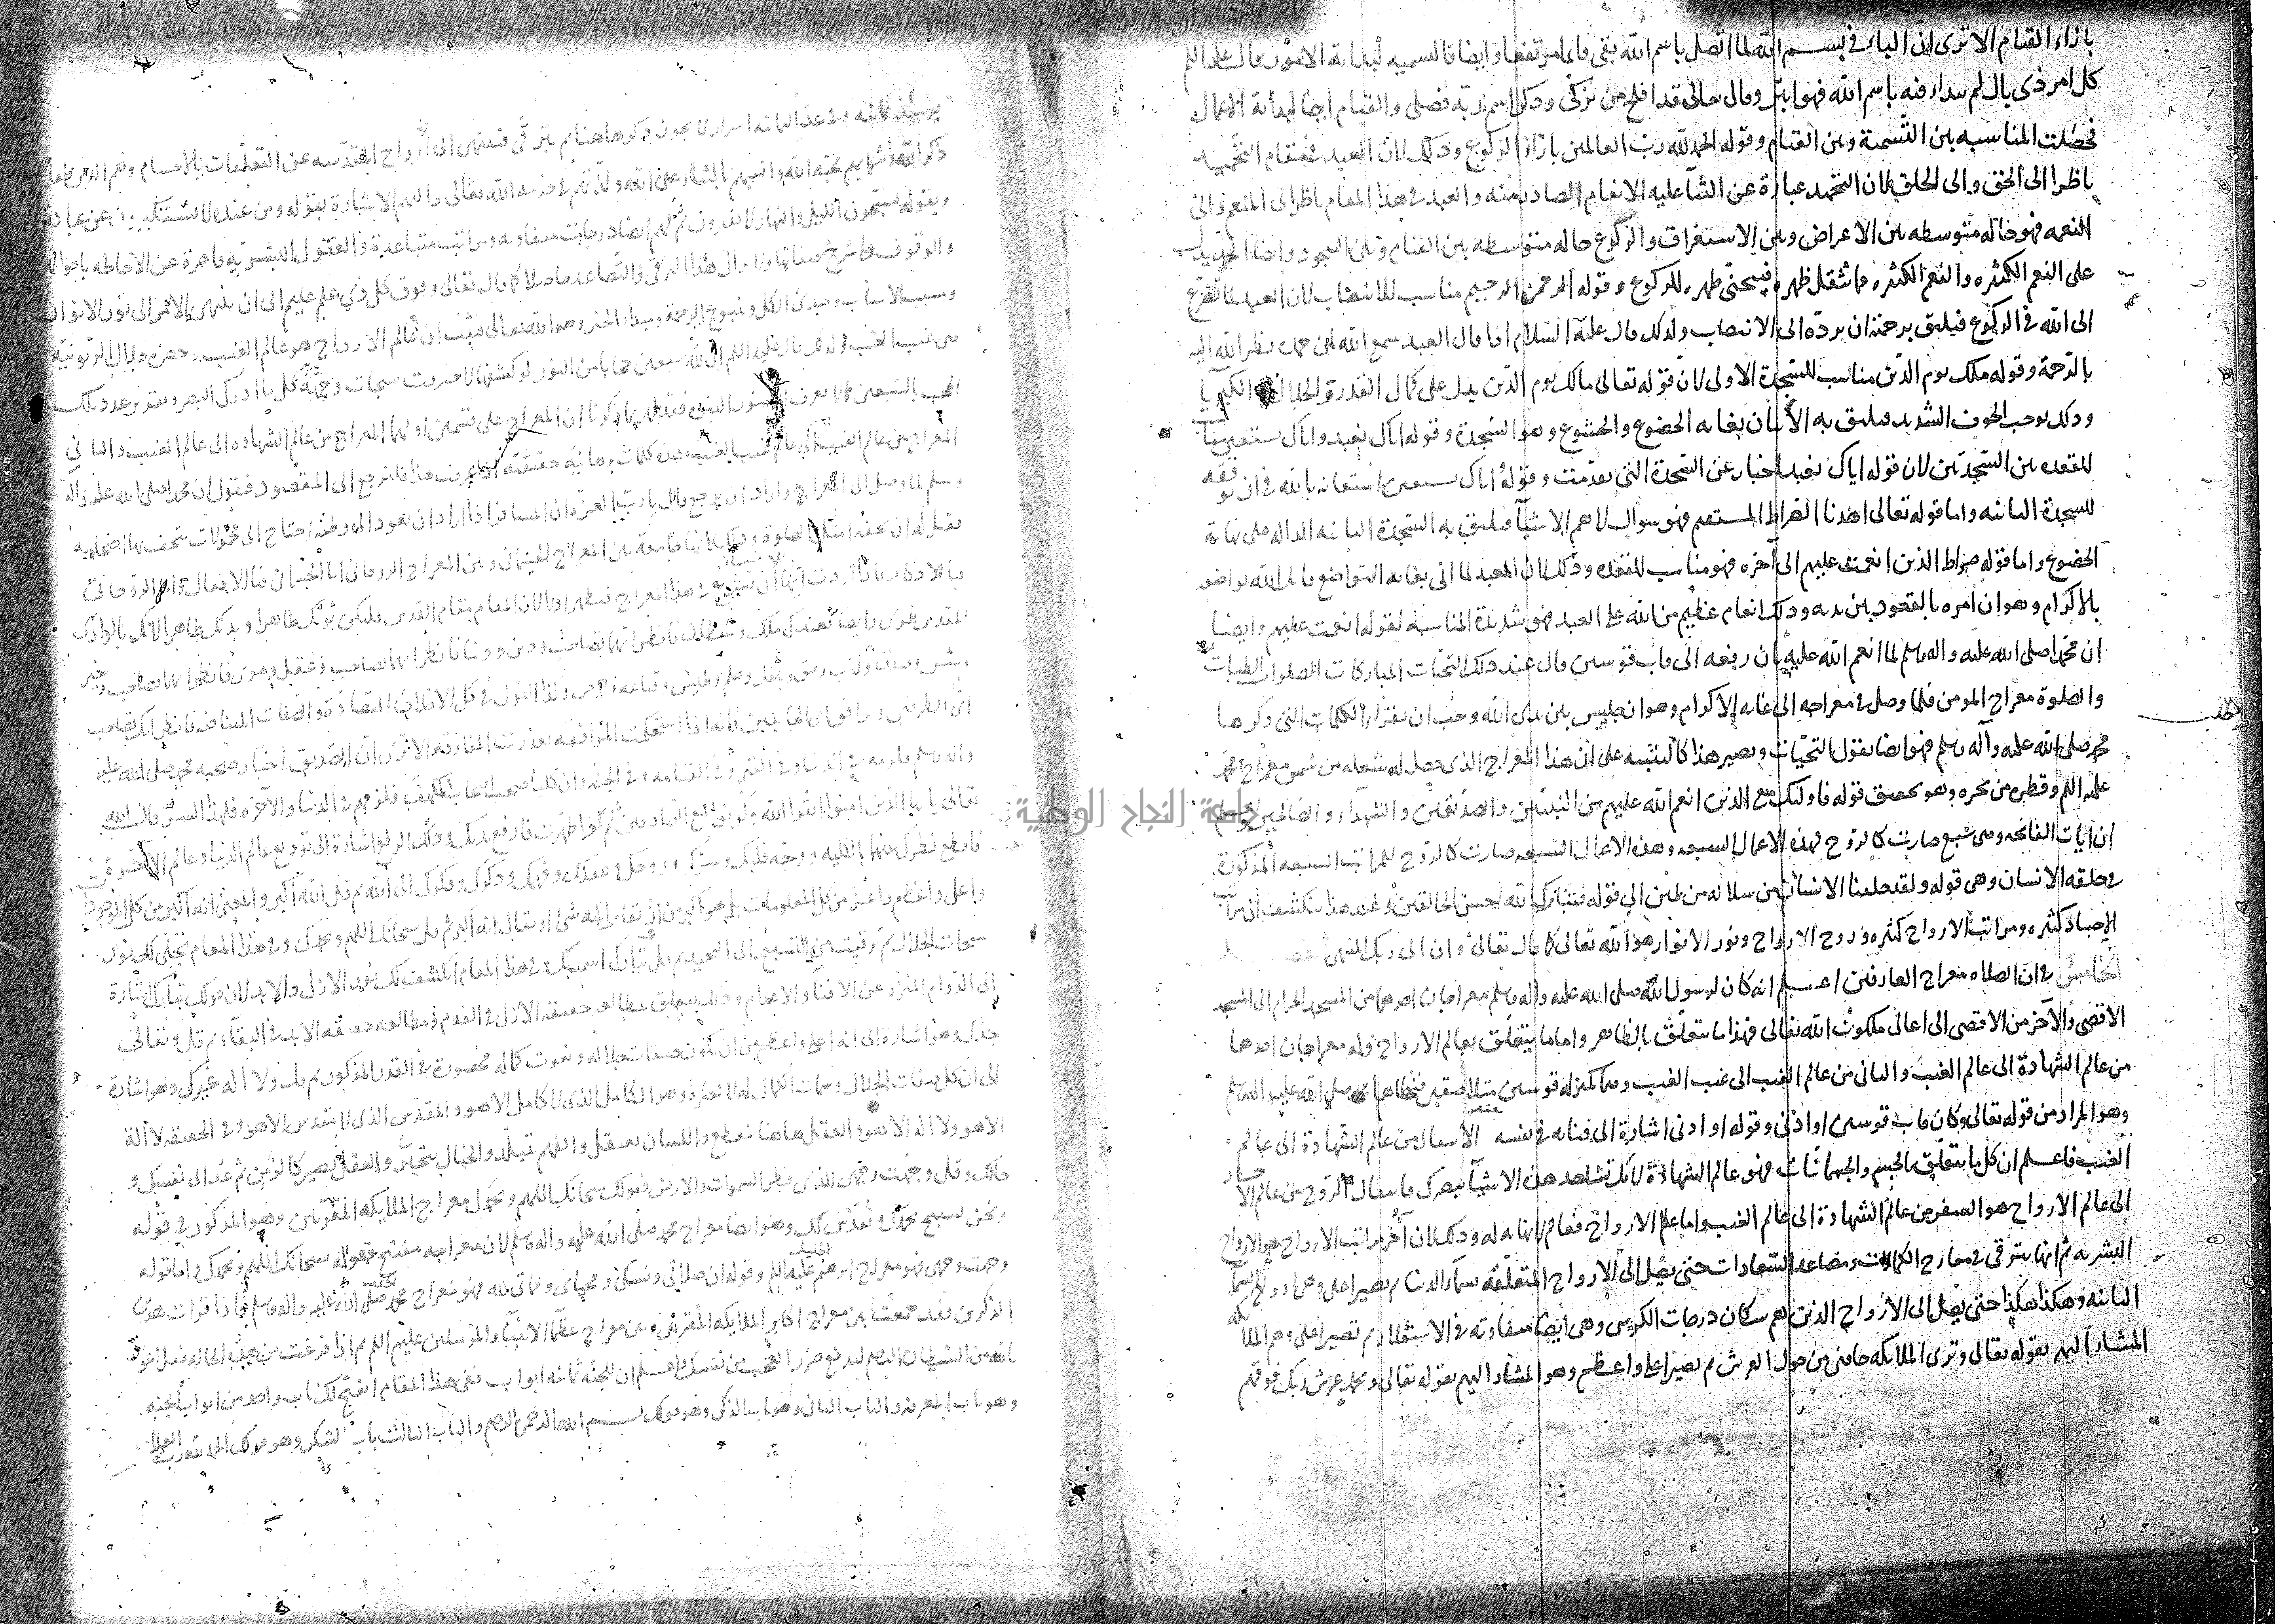 بازاء القيام الا ترى ان الباء في بسم الله لما اتصل باسم الله بقى قايما مرتفعا وايضا فالتسميه لبداية الامور قال عليه السلم
كل امر ذى بال لم يبداء فيه باسم الله فهو ابتر وقال تعالى قد افلح من تزكى وذكر اسم ربه فصلى والقيام ايضا لبداية الاعمال
فحصلت المناسبه بين التسمية وبين القيام وقوله الحمد لله رب العالمين بازاء الركوع وذلك لان العبد في مقام التحميد
ناظر الى الحق والى الخلق لان التحميد عبارة عن الثناء عليه الانعام الصادر منه والعبد في هذا المقام ناظر الى المنعم والى
النعمه فهو حاله متوسطه بين الاعراض وبين الاستغراق والركوع حاله متوسطه بين القيام وبين السجود وايضا الحمد يدل
على النعم الكثيره والنعم الكثيره مما تثقل ظهره فينحنى ظهره للركوع وقوله الرحمن الرحيم مناسب للانتصاب لان العبد لما تضرع
الى الله في الركوع فيليق برحمته ان يرده الى الانتصاب ولذلك قال عليه السلام اذا قال العبد سمع الله لمن حمده نظر الله اليه
بالرحمة وقوله ملك يوم الدين مناسب للسجدة الاولى لان قوله تعالى مالك يوم الدين يدل على كمال القدرة والجلال والكبريا
وذلك يوجب الخوف الشديد فيليق به الاتيان بغايه الخضوع والخشوع وهو السجدة وقوله اياك نعبد واياك نستعين مناسب
للقعده بين السجدتين لان قوله اياك نعبد اخبار عن السجدة التى تقدمت وقوله اياك نستعين استعانه بالله في ان يوفقه
للسجدة الثانيه واما قوله تعالى اهدنا الصراط المستقيم فهو سوال لاهم الاشيا فيليق به السجدة الثانيه الداله على نهاية
الخضوع واما قوله صراط الذين انعمت عليهم الى آخره فهو مناسب للقعده وذلك لان العبد لما اتى بغايه التواضع قابل الله تواضعه
بالاكرام وهو ان امره بالقعود بين يديه وذلك انعام عظيم من الله على العبد فهو شديدة المناسبه لقوله انعمت عليهم وايضا
ان محمدا صلى الله عليه واله وسلم لما انعم الله عليه بان رفعه الى قاب قوسين قال عند ذلك التحيات المباركات الصلوات الطيبات
والصلوة معراج المومن فلما وصل في معراجه الى غايه الاكرام وهو ان جلس بين يدى الله وجب ان يقرا الكلمات التى ذكرها
محمد صلى الله عليه وآله وسلم فهو ايضا يقول التحيات ويصير هذا كالتنبيه على ان هذا المعراج الذى حصل له شعله من شمس معراج محمد
عليه السلم وقطره من بحره وهو تحقيق قوله فاولئك مع الذين انعم الله عليهم من النبيين والصديقين والشهداء والصالحين واعلم
ان ايات الفاتحه وهى سبع صارت كالروح لهذه الاعمال السبعه وهذه الاعمال السبعه صارت كالروح للمراتب السبعه المذكورة
في خلقه الانسان وهى قوله ولقد خلقنا الانسان من سلاله من طين الى قوله فتبارك الله احسن الخالقين وعند هذا ينكشف ان مراتب
الاجساد كثيره ومراتب الارواح كثيره وروح الارواح ونور الانوار هو الله تعالى كما قال تعالى وان الى ربك المنتهى الفصل
الخامس في ان الصلاه معراج العارفين اعلم انه كان لرسول الله صلى الله عليه واله وسلم معراجان احدهما من المسجد الحرام الى المسجد
الاقصى والآخر من الاقصى الى اعالى ملكوت الله تعالى فهذا ما يتعلق بالظاهر واما ما يتعلق بعالم الارواح فله معراجان احدهما
من عالم الشهادة الى عالم الغيب والثانى من عالم الغيب الى غيب الغيب وهما بمنزله قوسين متلاصقين فتخطاهما محمد صلى الله عليه واله وسلم
وهو المراد من قوله تعالى وكان قاب قوسين او ادنى وقوله او ادنى اشارة الى فنايه في نفسه الانتقال من عالم الشهادة الى عالم
الغيب فاعلم ان كل ما يتعلق بالجسم والجسمانيات فهو عالم الشهادة لانك تشاهد هذه الاشيا ببصرك فانتقال الروح من عالم الاجساد
الى عالم الارواح هو السفر من عالم الشهادة الى عالم الغيب واما عالم الارواح فعالم لا نهايه له وذلك لان آخر مراتب الارواح هو الارواح
البشريه ثم انها تترقى في معارج الكمالات ومصاعد السعادات حتى يصل الى الارواح المتعلقه بسماء الدنيا ثم يصير اعلى وهى ارواح السما
الثانيه وهكذا هكذا حتى يصل الى الارواح الذين هم سكان درجات الكرسى وهى ايضا متفاوته في الاستعلا ثم تصير اعلى وهم الملايكه
المشار اليهم بقوله تعالى وترى الملايكه حافين من حول العرش ثم يصير اعلى واعظم وهو المشار اليهم بقوله تعالى ويحمل عرش ربك فوقهم
يوميذ ثمانيه وفى عدد الثمانيه اسرار لا يجوز ذكرها هنا ثم يترقى فينتهى الى ارواح المقدسه عن التعلقات بالاجسام وهم الذين طعامهم
ذكر الله وشرابهم محبه الله وانسهم بالثناء على الله ولذتهم في خدمه الله تعالى واليهم الاشارة بقوله ومن عنده لا يستكبرون عن عبادته
وبقوله يسبحون الليل والنهار لا يفترون ثم لهم ايضا درجات متفاوته ومراتب متباعدة والعقول البشريه قاصرة عن الاحاطه باحوالها
والوقوف على شرح صفاتها ولا يزال هذا الترقى والتصاعد حاصلا كما قال تعالى وفوق كل ذي علم عليم الى ان ينتهى الامر الى نور الانوار
ومسبب الاسباب ومبدئ الكل وينبوع الرحمة ومبداء الخير وهو الله تعالى فثبت ان عالم الارواح هو عالم الغيب وحضرة جلال الربوبية
هى غيب الغيب ولذلك قال عليه السلم ان لله سبعين حجابا من النور لو كشفها لاحرقت سبحات وجهه كل ما ادرك البصر وتقدير عدد تلك
الحجب بالسبعين مما لا يعرف الا بنور النبوة فقد ظهر بما ذكرنا ان المعراج على قسمين اولهما المعراج من عالم الشهاده الى عالم الغيب والثانى
المعراج من عالم الغيب الى عالم غيب الغيب وهذه كلمات برهانيه حقيقيه اذا عرفت هذا فلنرجع الى المقصود فنقول ان محمدا صلى الله عليه واله
وسلم لما وصل الى المعراج واراد ان يرجع قال يا رب العزه ان المسافر اذا اراد ان يعود الى وطنه احتاج الى محمولات يتحف بها اصحابه
فقيل له ان تحفه امتك الصلوة وذلك لانها جامعة بين المعراج الجسمانى وبين المعراج الروحانى اما الجسمانى فبالافعال واما الروحانى
فبالاذكار فاذا اردت ايها العبد الشروع في هذا المعراج فتطهر اولا لان المقام مقام القدس فليكن ثوبك طاهرا وبدنك طاهرا لانك بالوادى
المقدس طوى وايضا فعندك ملك وشيطان فانظر ايهما تصاحب ودين ودنيا فانظر ايهما تصاحب وعقل وهوى فانظر ايهما تصاحب وخير
وشر وصدق وكذب وحق وباطل وحلم وطيش وقناعه وحرص وكذا القول في كل الاخلاق المتضادة والصفات المتنافيه فانظر انك تصاحب
اى الطرفين وترافق اى الجانبين فانه اذا استحكمت المرافقه تعذرت المفارقه الا ترى ان الصديق اختار صحبه محمد صلى الله عليه
واله وسلم فلزمه في الدنيا وفى القبر وفى القيامه وفى الجنه وان كلبا صحب اصحاب الكهف فلزمهم في الدنيا والآخره فلهذا السر قال الله
تعالى يا ايها الذين امنوا اتقوا الله وكونوا مع الصادقين ثم اذا تطهرت فارفع يديك وذلك الرفع اشارة الى توديع عالم الدنيا وعالم الاخره
فاقطع نظرك عنهما بالكليه ووجه قلبك وسرك وروحك وعقلك وفهمك وذكرك وفكرك الى الله ثم قل الله اكبر والمعنى انه اكبر من كل الموجودات
واعلى واعظم واعز من كل المعلومات بل هو اكبر من ان يقاس اليه شئ او يقال انه اكبر ثم قل سبحانك اللهم وبحمدك وفى هذا المقام تجلى لك نور
سبحات الجلال ثم ترقيت من التسبيح الى التحميد ثم قل تبارك اسمك وفى هذا المقام انكشف لك نور الازل والابد لان قولك تبارك اشارة
الى الدوام المنزه عن الافناء والاعدام وذلك يتعلق بمطالعه حقيقه الازل في القدم ومطالعه حقيقه الابد في البقاء ثم قل وتعالى
جدك وهو اشارة الى انه اعلى واعظم من ان تكون صفات جلاله ونعوت كماله محصورة في القدر المذكور ثم قل ولا اله غيرك وهو اشارة
الى ان كل صفات الجلال وسمات الكمال له لا لغيره وهو الكامل الذى لا كامل الا هو والمقدس الذى لا مقدس الا هو وفى الحقيقه لا اله
الا هو ولا اله الا هو والعقل هاهنا ينقطع واللسان يعتقل والفهم يتبلد والخيال يتحير والعقل يصير كالزمن ثم عد الى نفسك و
حالك وقل وجهت وجهى للذى فطر السموات والارض فقولك سبحانك اللهم وبحمدك معراج الملايكه المقربين وهو المذكور في قوله
ونحن نسبح بحمدك ونقدس لك وهو ايضا معراج محمد صلى الله عليه واله وسلم لان معراجه مفتتح بقوله سبحانك اللهم وبحمدك واما قوله
وجهت وجهى فهو معراج ابرهيم الخليل عليه السلم وقوله ان صلاتى ونسكى ومحياى ومماتى لله فهو معراج محمد الحبيب صلى الله عليه واله وسلم فاذا قرات هذين
الذكرين فقد جمعت بين معراج اكابر الملايكه المقربين وبين معراج عظماء الانبياء والمرسلين عليهم السلم ثم اذا فرغت من هذه الحاله فقل اعوذ
بالله من الشيطان الرجيم لتدفع ضرر العجب من نفسك واعلم ان للجنه ثمانيه ابواب ففى هذا المقام انفتح لك باب واحد من ابواب الجنه
وهو باب المعرفه والباب الثانى وهو باب الذكر وهو قولك بسم الله الرحمن الرحيم والباب الثالث باب الشكر وهو قولك الحمد لله رب العالمين
جامعة النجاح الوطنية